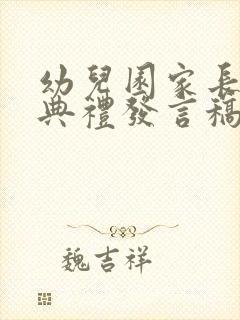 幼兒園家長
典禮發言稿
魏吉祥